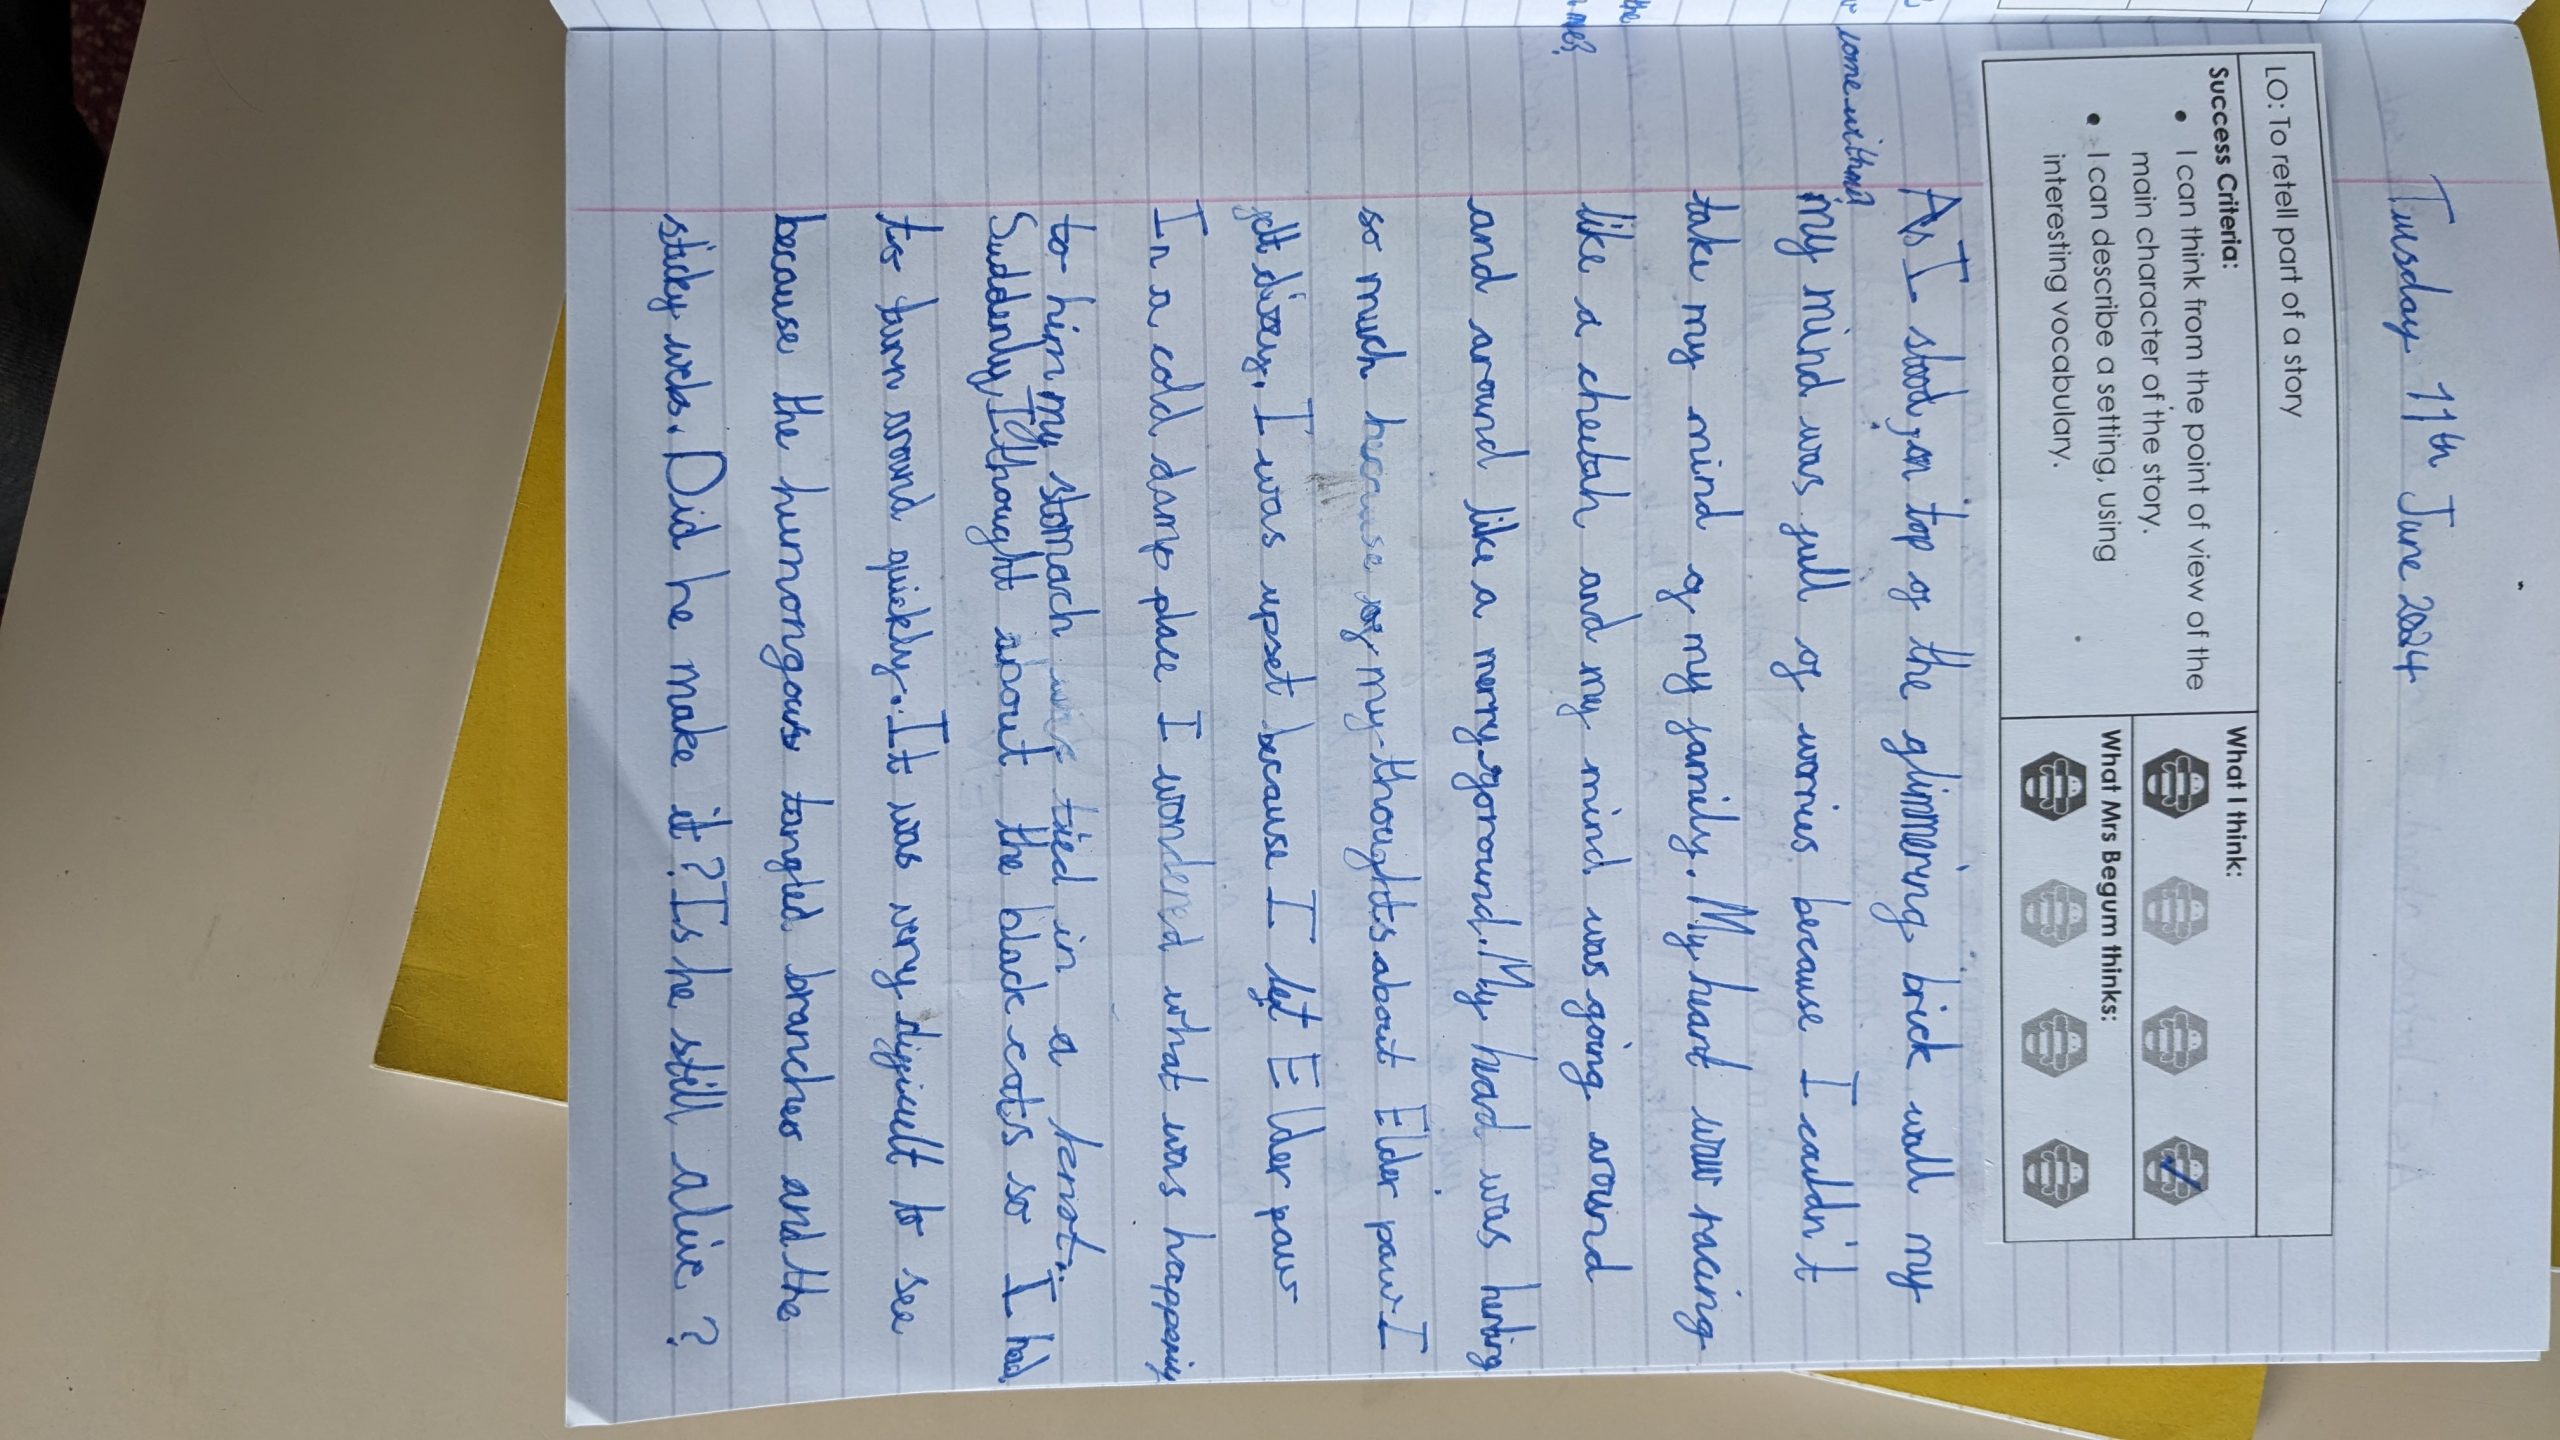 Tuesday 11th June 2024
LO: To retell part of a story
Success Criteria:
• I can think from the point of view of the
main character of the story.
• I can describe a setting, using
interesting vocabulary.
What I think:
What Mrs Begum thinks:
As I stood on top of the glimmering brick wall my
my mind was full of worries because I couldn't
take my mind of my family. My heart was racing
like a cheutah and my mind was going around
and around like a merry goround. My head was hurting
so much because of my thoughts about Elder paw I
felt dizzy. I was upset because I left Elder paw
In a cold damp place I wondered what was happening
to him my stomach was tied in a knot.
Suddenly, I thought about the black cats so I had
to turn around quickly. It was very difficult to see
because the humongous tangled branches and the
sticky webs. Did he make it? Is he still alive?
come with me?
the
me?